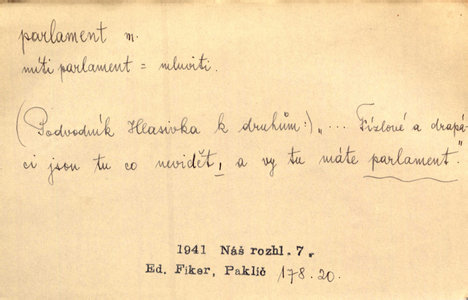 parlament m.
míti parlament = mluviti.
(Podvodník Hlasivka k druhům:) „... Fízlové a drapá-
ci jsou tu co nevidět, a vy tu máte parlament."
1941 Náš rozhl. 7.
Ed. Fiker, Paklíč 178.20.